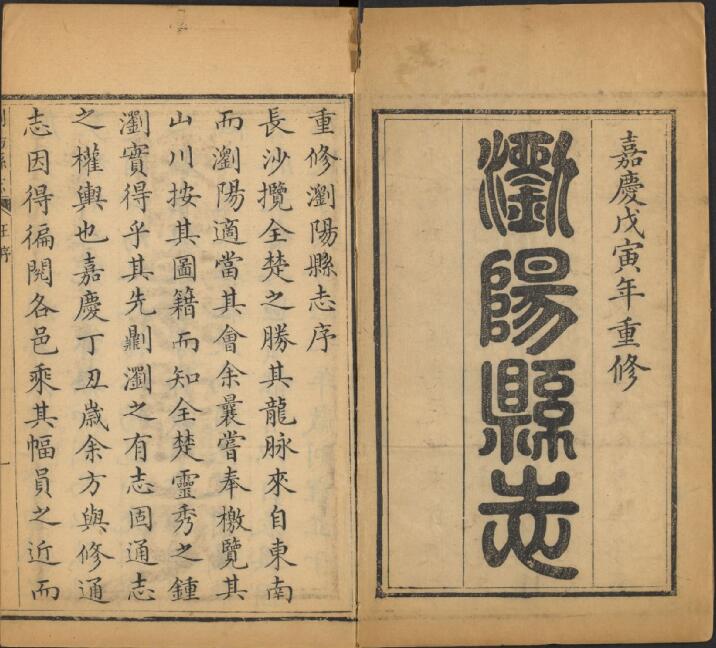 嘉慶戊寅年重修
瀏陽縣志
重修瀏陽縣志序
長沙攬全楚之勝其龍脉來自東南
而瀏陽適當其會余曩嘗奉檄覽其
山川按其圖籍而知全楚靈秀之鍾
瀏實得乎其先剿瀏之有志固通志
之權輿也嘉慶丁丑歲余方與修通
志因得徧閱各邑乘其幅員之近而
汪序
一